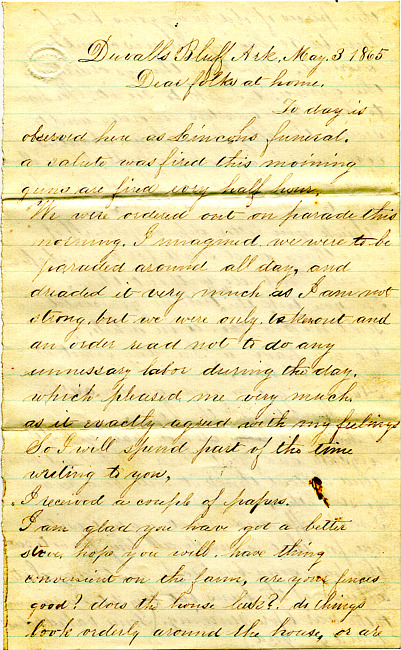 Duvalls Bluff Ark, May, 3 1865
Dear folks at home.
To day is
observed here as Lincons funeral.
a salute was fired this morning
guns are fired evry half hour,
We were ordered out on parade this
morning. I imagined we were to be
paraded around all day, and
dreaded it very much as I am not
strong, but we were only taken out and
an order read not to do any
unnessary labor during the day.
which pleased me very much
as it exactly agreed with my feelings
So I will spend part of the time
writing to you,
I received a couple of papers.
I am glad you have got a better
stove, hope you will have thing
convenient on the farm, are your fences
good? does the house leak? do things
look orderly around the house, or are